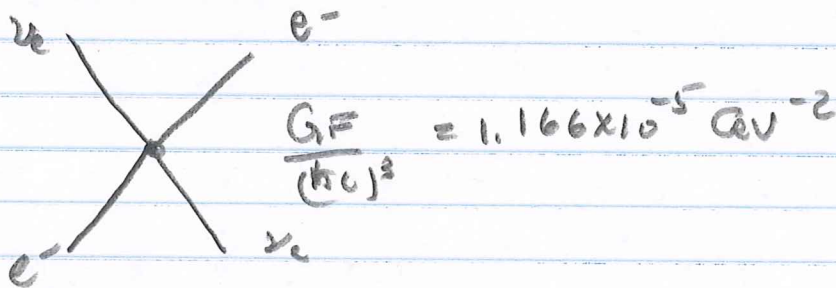 νe e-
GF/(ħc)³ = 1.166×10⁻⁵ GeV⁻²
e- νe